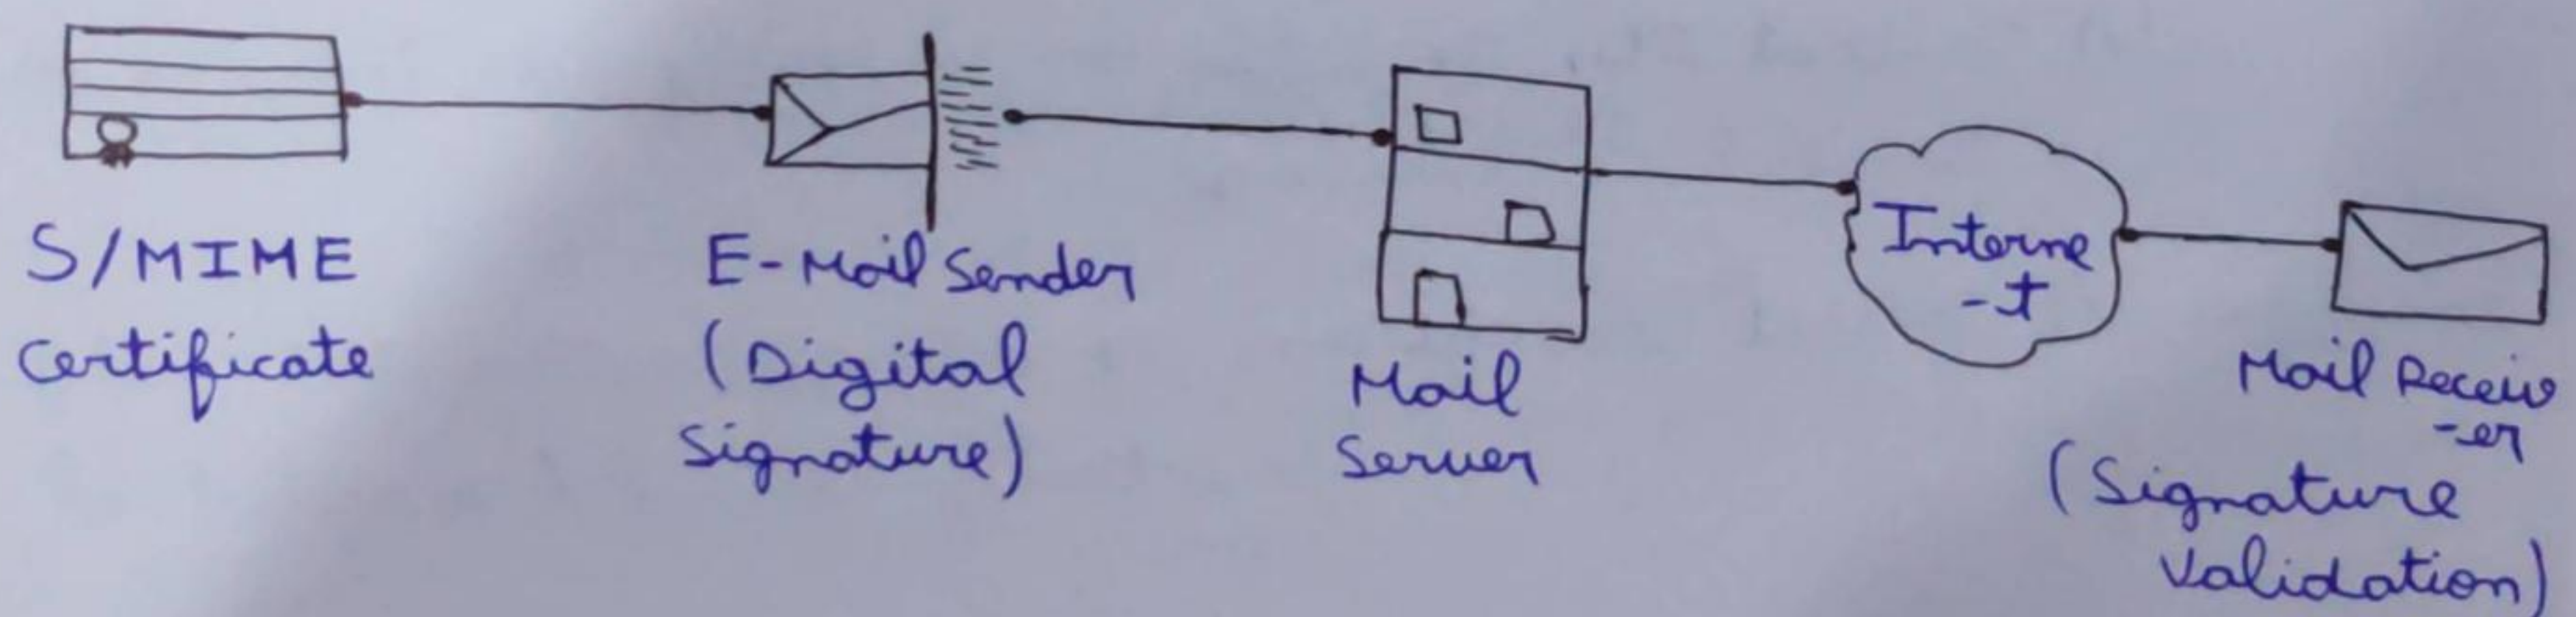 S/MIME
Certificate
E-Mail Sender
(Digital
Signature)
Mail
Server
Interne
-t
Mail Receiv
-er
(Signature
Validation)